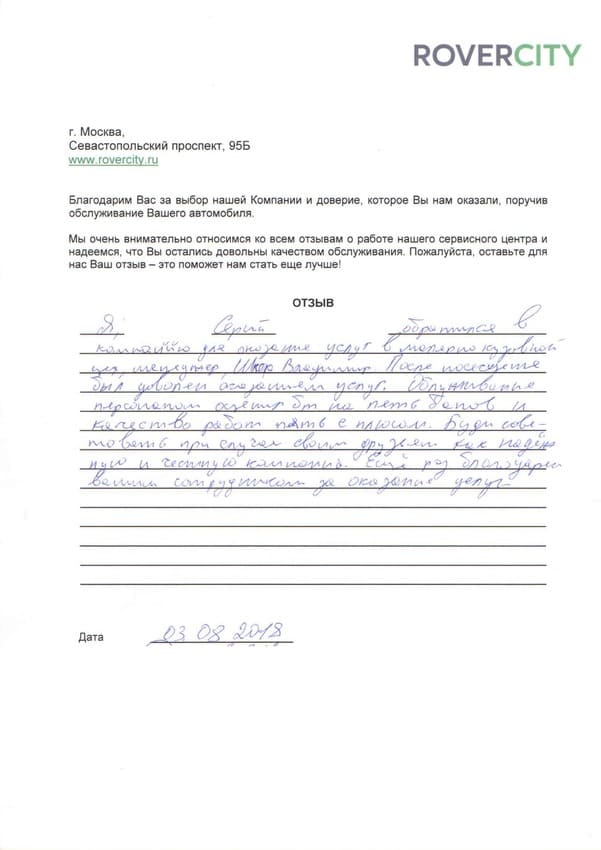 ROVERCITY
г. Москва,
Севастопольский проспект, 95Б
www.rovercity.ru
Благодарим Вас за выбор нашей Компании и доверие, которое Вы нам оказали, поручив
обслуживание Вашего автомобиля.
Мы очень внимательно относимся ко всем отзывам о работе нашего сервисного центра и
надеемся, что Вы остались довольны качеством обслуживания. Пожалуйста, оставьте для
нас Ваш отзыв – это поможет нам стать еще лучше!
ОТЗЫВ
Я, обратился в
компанию для оказание услуг в малярно кузовной
цех менеджер, Владимир. После посещение
был доволен оказанием услуг. Облуживание
персоналом на пять балов и
качество работ пять с плюсом. Буду сове-
товать при случаи своим друзьям как надёж
ную и честную компанию. Ещё раз благодарен
вашим сотрудникам за оказание услуг
Дата 03 08 2018